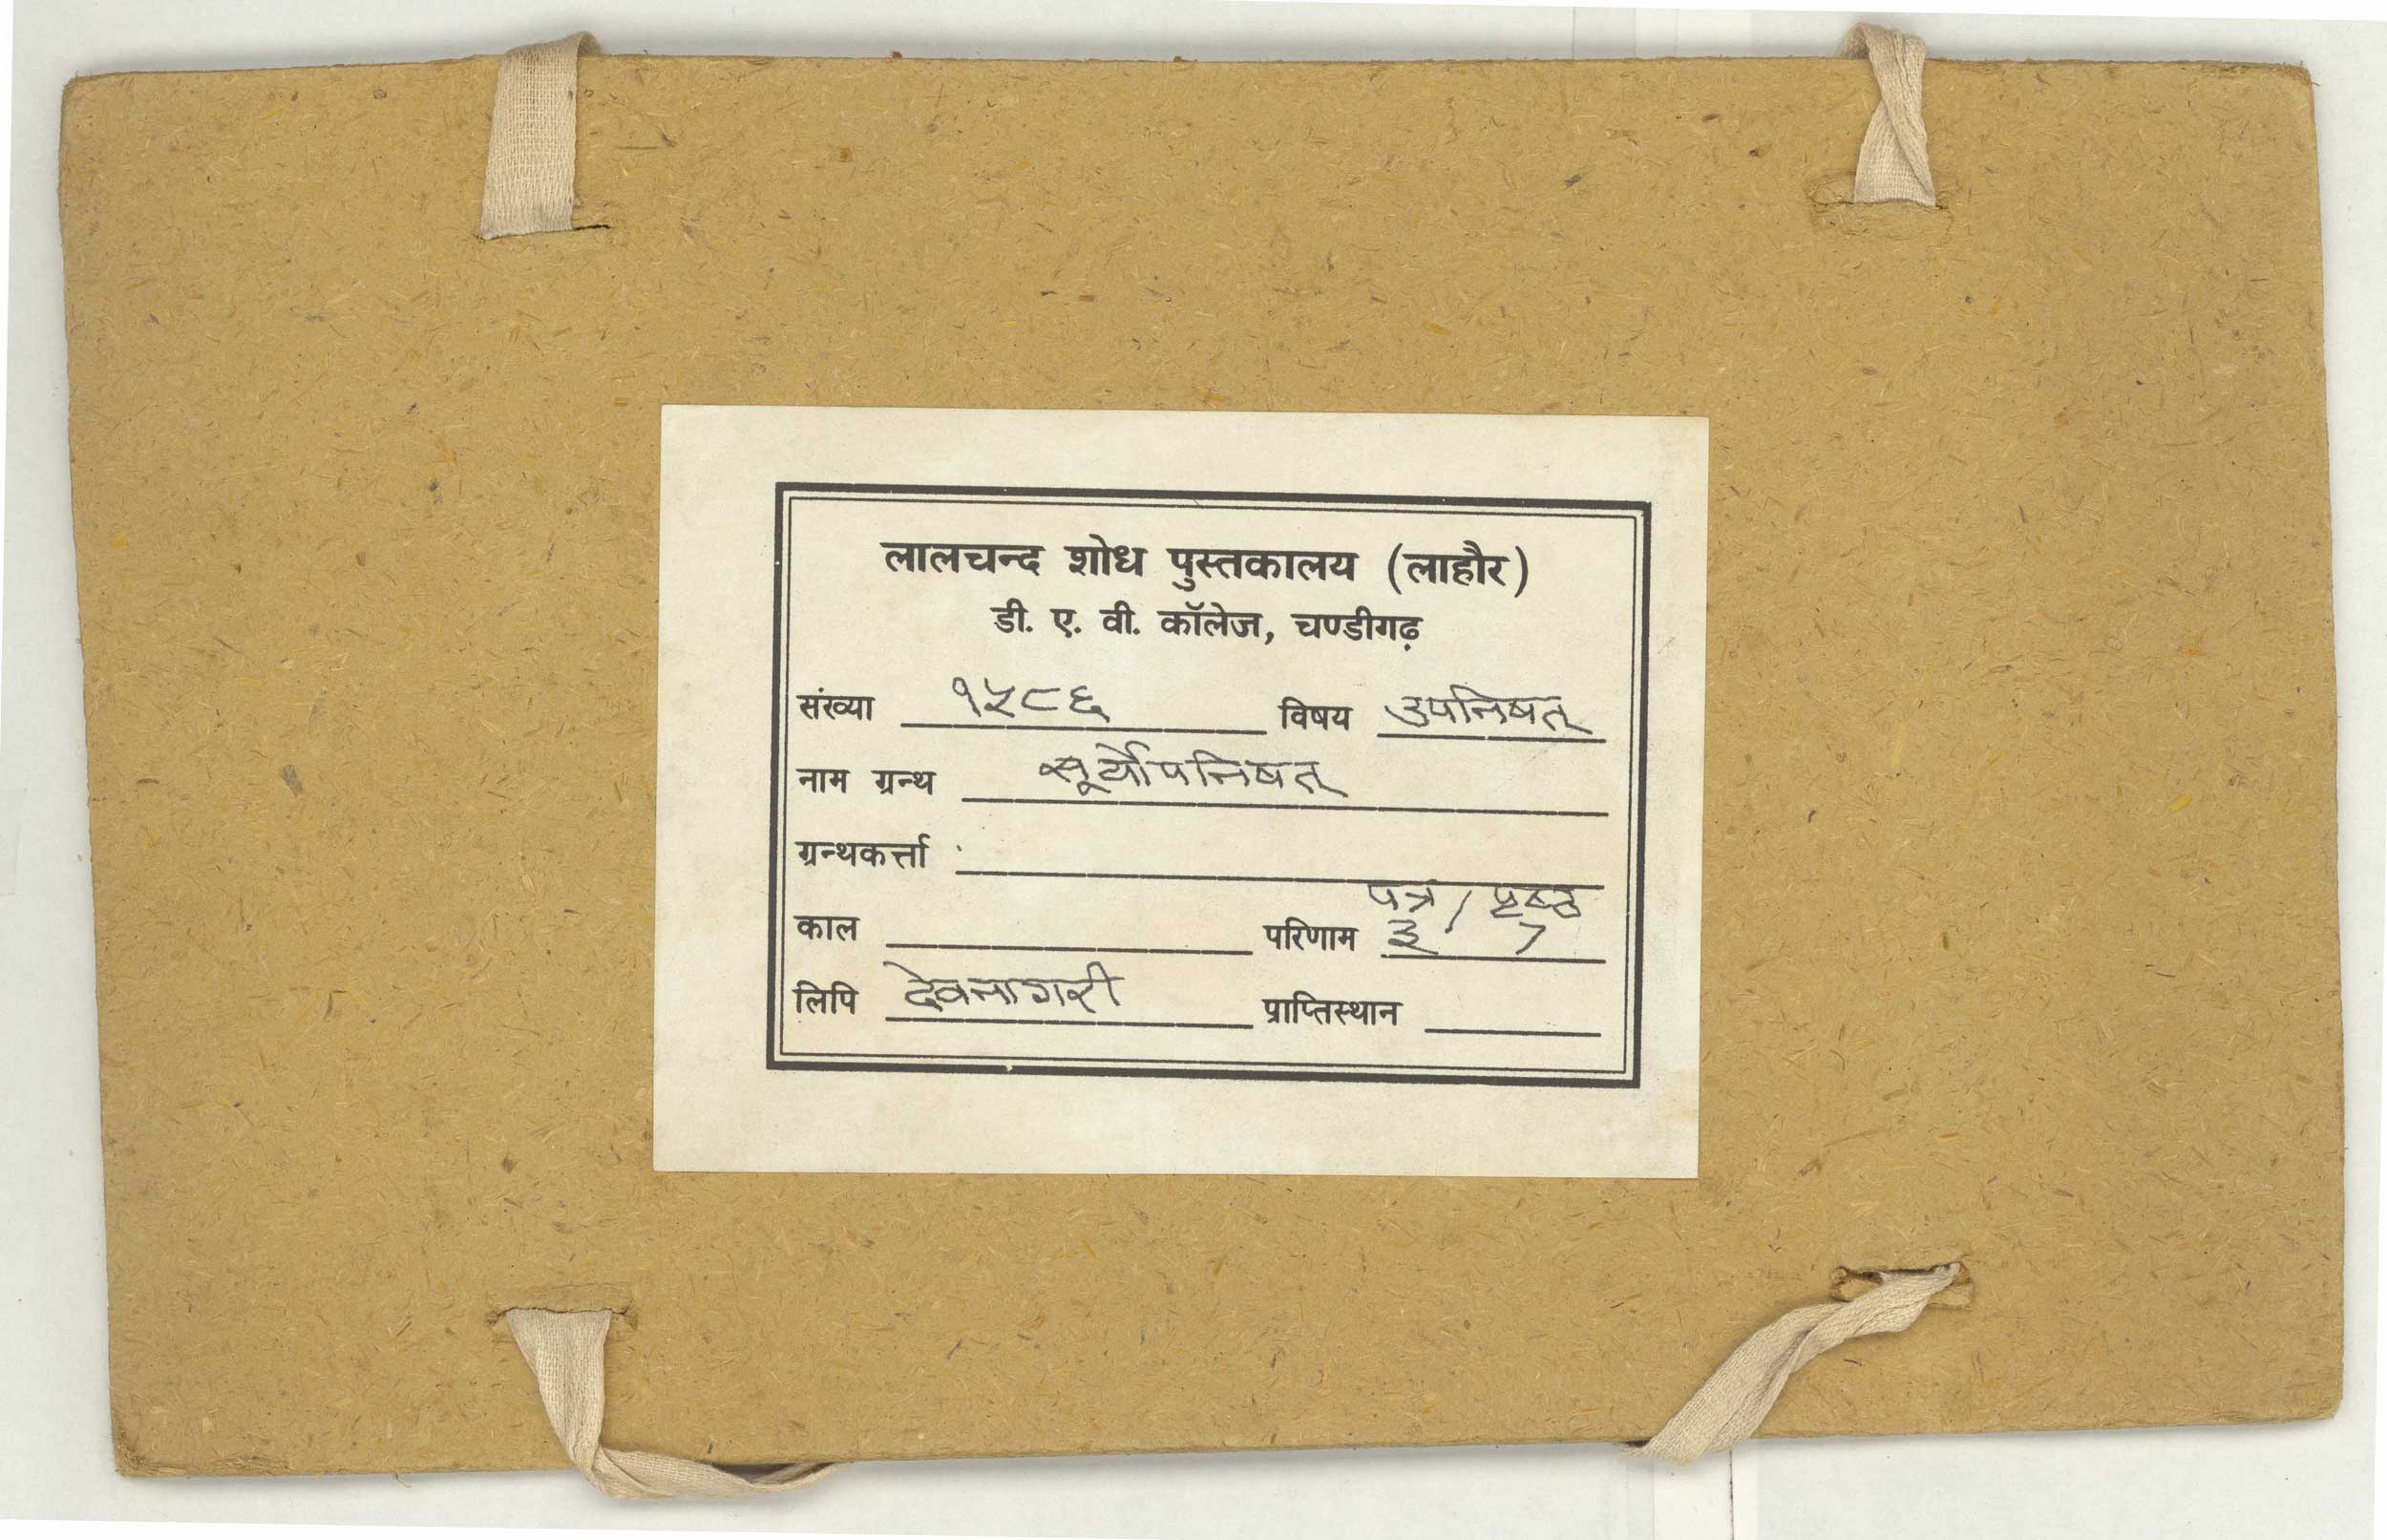 लालचन्द शोध पुस्तकालय (लाहौर)
डी. ए. वी. कॉलेज, चण्डीगढ़
संख्या १५८६ विषय उपनिषत्
नाम ग्रन्थ सूर्योपनिषत्
ग्रन्थकर्त्ता
पत्र / पृष्ठ
काल परिणाम ३ / 7
लिपि देवनागरी प्राप्तिस्थान